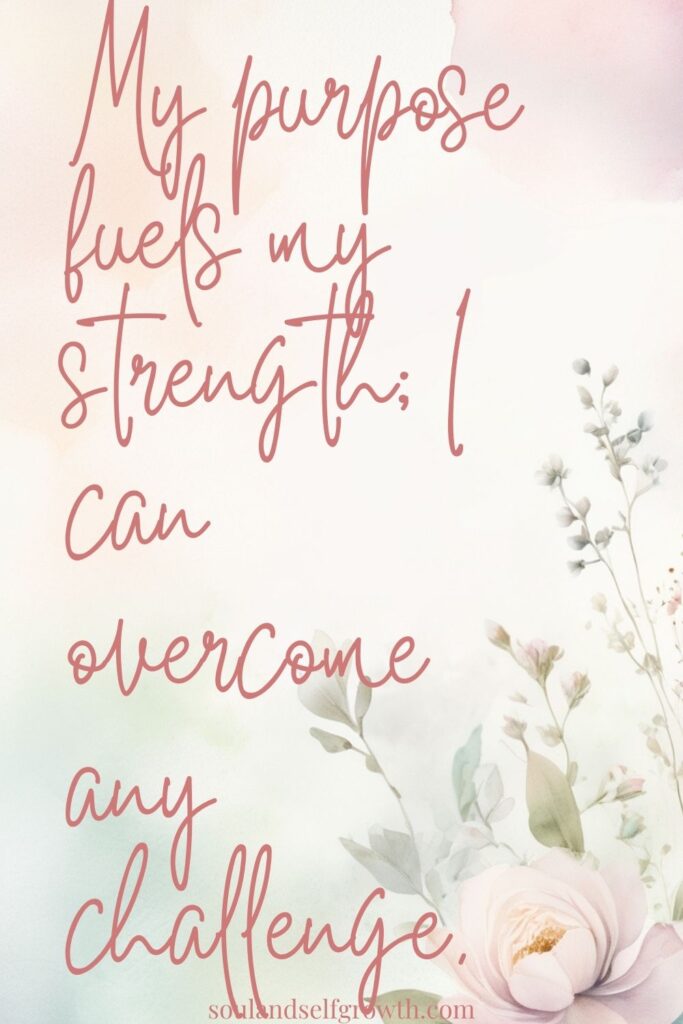 My purpose
fuels my
strength; I
can
overcome
any
challenge.
soulandselfgrowth.com